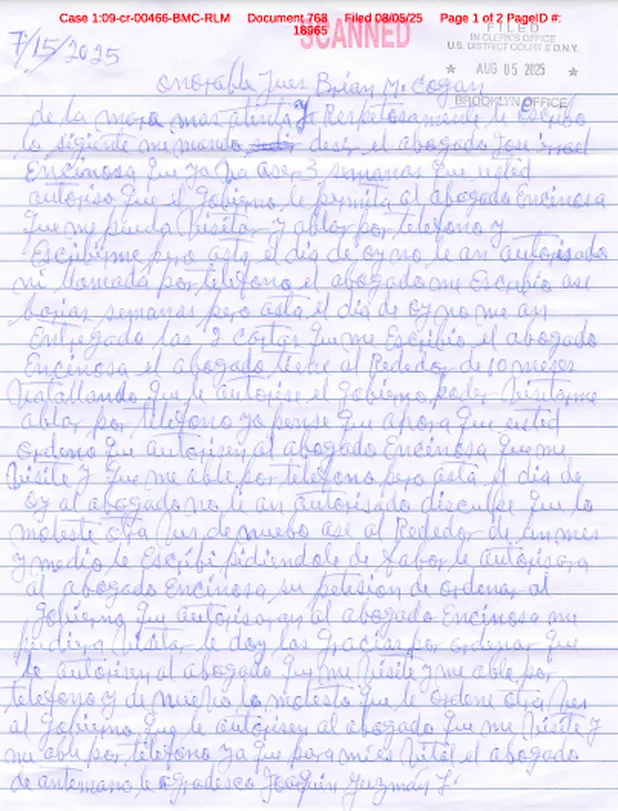 Case 1:09-cr-00466-BMC-RLM Document 768 Filed 08/05/25 Page 1 of 2 PageID #:
18965
SCANNED
FILED
IN CLERK'S OFFICE
U.S. DISTRICT COURT E.D.N.Y.
★ AUG 05 2025 ★
BROOKLYN OFFICE
7/15/2025
onorable Jues Brian M. Cogan
de la manera mas atenta y Respetosamente le Escribo
lo sigiente me mando desir el abogado Jose Israel
Encinosa que ya ba aser 3 semanas que usted
autoriso que el gobierno le permita al abogado Encinosa
que me pueda Visitar y ablar por telefono y
Escribirme pero asta el dia de oy no le an autorisado
ni llamada por telefono el abogado me Escribio ase
barias semanas pero asta el dia de oy no me an
Entregado las 2 cartas que me Escribio el abogado
Encinosa el abogado tiene al Rededor de 10 meses
batallando que le autorise el gobierno poder Visitarme
ablar por telefono yo pense que ahora que usted
ordeno que autorisen al abogado Encinosa que me
Visite y que me able por telefono pero asta el dia de
oy al abogado no le an autorisado disculpe que lo
moleste otra bes de nuebo ase al Rededor de un mes
y medio le Escribi pidiendole de fabor le autorisara
al abogado Encinosa su petision de ordenar al
gobierno que autorisaran al abogado Encinosa me
pudiera Visitar le doy las gracias por ordenar que
le autorisen al abogado que me Visite y me able por
telefono y de nuebo lo molesto que le ordene otra bes
al gobierno que le autorisen al abogado que me Visite y
me able por telefono ya que para mi es Vital el abogado
de antemano le agradesco Joaquin Guzmán L.